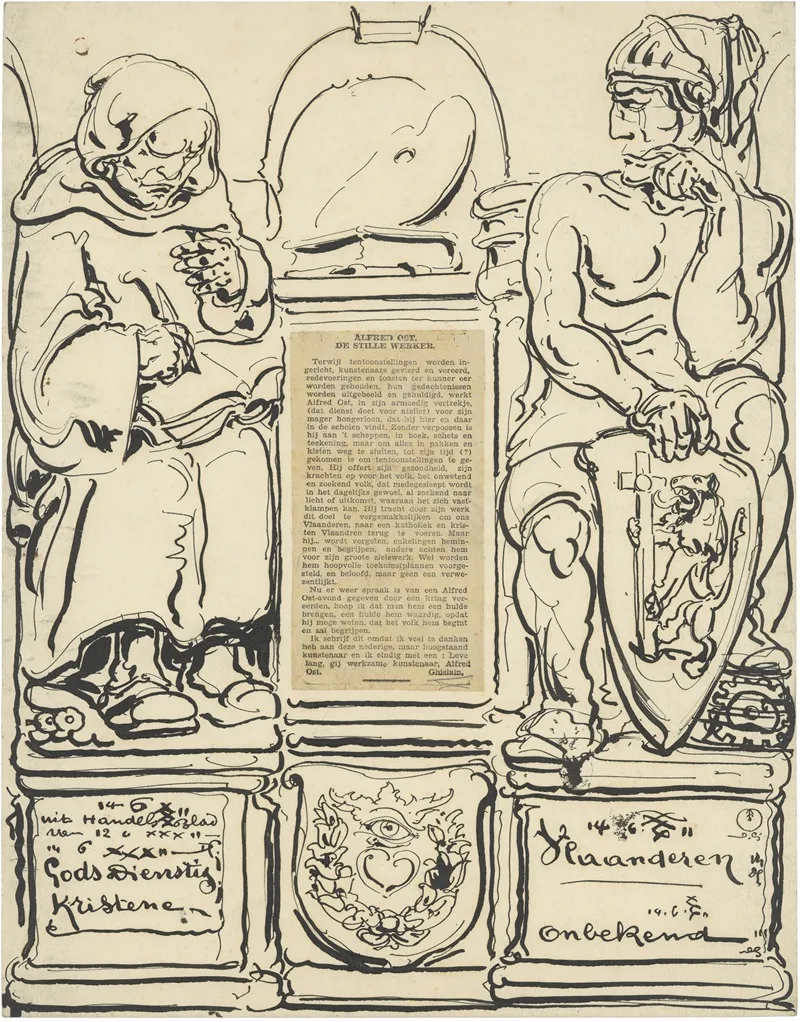 ALFRED OST,
DE STILLE WERKER.
Terwijl tentoonstellingen worden in-
gericht, kunstenaars gevierd en vereerd,
redevoeringen en toasten ter hunner eer
worden gehouden, hun gedachtenissen
worden uitgebeeld en gehuldigd, werkt
Alfred Ost, in zijn armoedig vertrekje,
(dat dienst doet voor atelier) voor zijn
mager hongerloon, dat hij hier en daar
in de scholen vindt. Zonder verpoozen is
hij aan 't scheppen, in boek, schets en
teekening, maar om alles in pakken en
kisten weg te sluiten, tot zijn tijd (?)
gekomen is om tentoonstellingen te ge-
ven. Hij offert zijn gezondheid, zijn
krachten op voor het volk, het onwetend
en zoekend volk, dat medegesleept wordt
in het dagelijks gewoel, al zoekend naar
licht of uitkomst, waaraan het zich vast-
klampen kan. Hij tracht door zijn werk
dit doel te vergemakkelijken om ons
Vlaanderen, naar een katholiek en kris-
ten Vlaandren terug te voeren. Maar
hij... wordt vergeten, enkelingen bemin-
nen en begrijpen, andere achten hem
voor zijn groote zielewerk. Wel worden
hem hoopvolle toekomstplannen voorge-
steld, en beloofd, maar geen een verwe-
zentlijkt.
Nu er weer spraak is van een Alfred
Ost-avond gegeven door een kring ver-
eerden, hoop ik dat men hem een hulde
brengen, een hulde hem waardig, opdat
hij moge weten, dat het volk hem begint
en zal begrijpen.
Ik schrijf dit omdat ik veel te danken
heb aan deze nederige, maar hoogstaand
kunstenaar en ik eindig met een : Leve
lang, gij werkzame kunstenaar, Alfred
Ost. Ghislain.
14 6
uit Handelsblad
van 12 6 XXX "
14 6 XXX "
Gods Dienstig
Kristene
14 6 "
Vlaanderen
14.6. "
onbekend